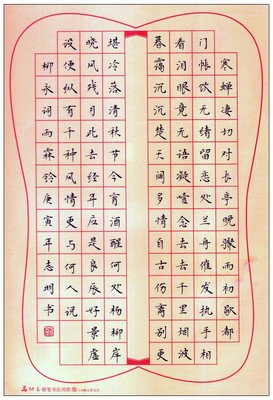 寒蝉凄切对长亭晚骤雨初歇都
门帐饮无绪留恋处兰舟催发执手相
看泪眼竟无语凝噎念去去千里烟波
暮霭沉沉楚天阔多情自古伤离别更
堪冷落清秋节今宵酒醒何处杨柳岸
晓风残月此去经年应是良辰好景虚
设便纵有千种风情更与何人说
柳永词雨霖铃庚寅年志明书
硬笔书法用纸